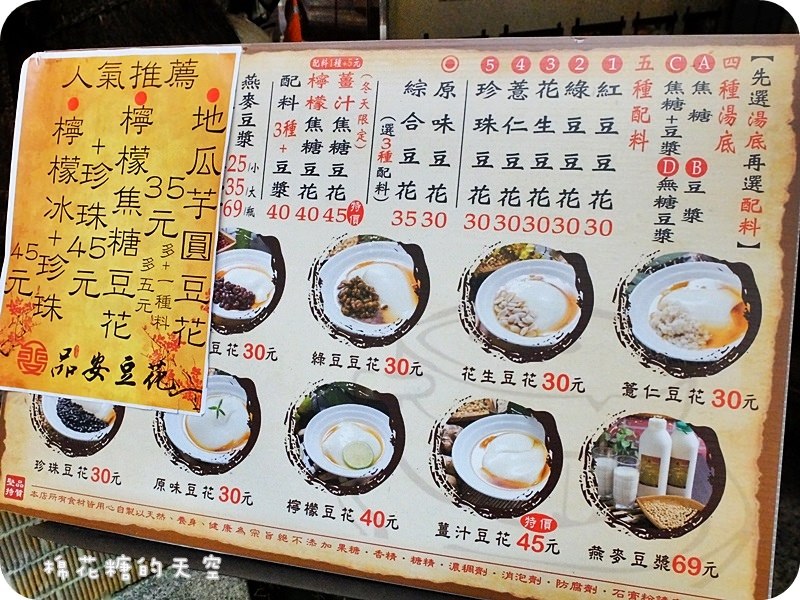 【先選湯底再選配料】
四種湯底
A 焦糖 B 豆漿
C 焦糖+豆漿 D 無糖豆漿
五種配料
1 紅豆豆花 30
2 綠豆豆花 30
3 花生豆花 30
4 薏仁豆花 30
5 珍珠豆花 30
原味豆花 30
綜合豆花 35
(選3種配料)
配料1種+5元
(冬天限定)
薑汁焦糖豆花 45 特價
檸檬焦糖豆花 40
配料3種+豆漿 40
燕麥豆漿
25/小
35/大
69/瓶
人氣推薦
地瓜芋圓豆花
35元
多+一種料
多五元
檸檬焦糖豆花
+珍珠45元
檸檬冰+珍珠
45元
品安豆花
豆花30元
綠豆豆花30元
花生豆花30元
薏仁豆花30元
珍珠豆花30元
原味豆花30元
檸檬豆花40元
特價
薑汁豆花45元
燕麥豆漿69元
堅持品質
本店所有食材皆用心自製以天然、養身、健康為宗旨絕不添加果糖·香精·糖精·濃稠劑·消泡劑·防腐劑·石膏粉
棉花糖的天空